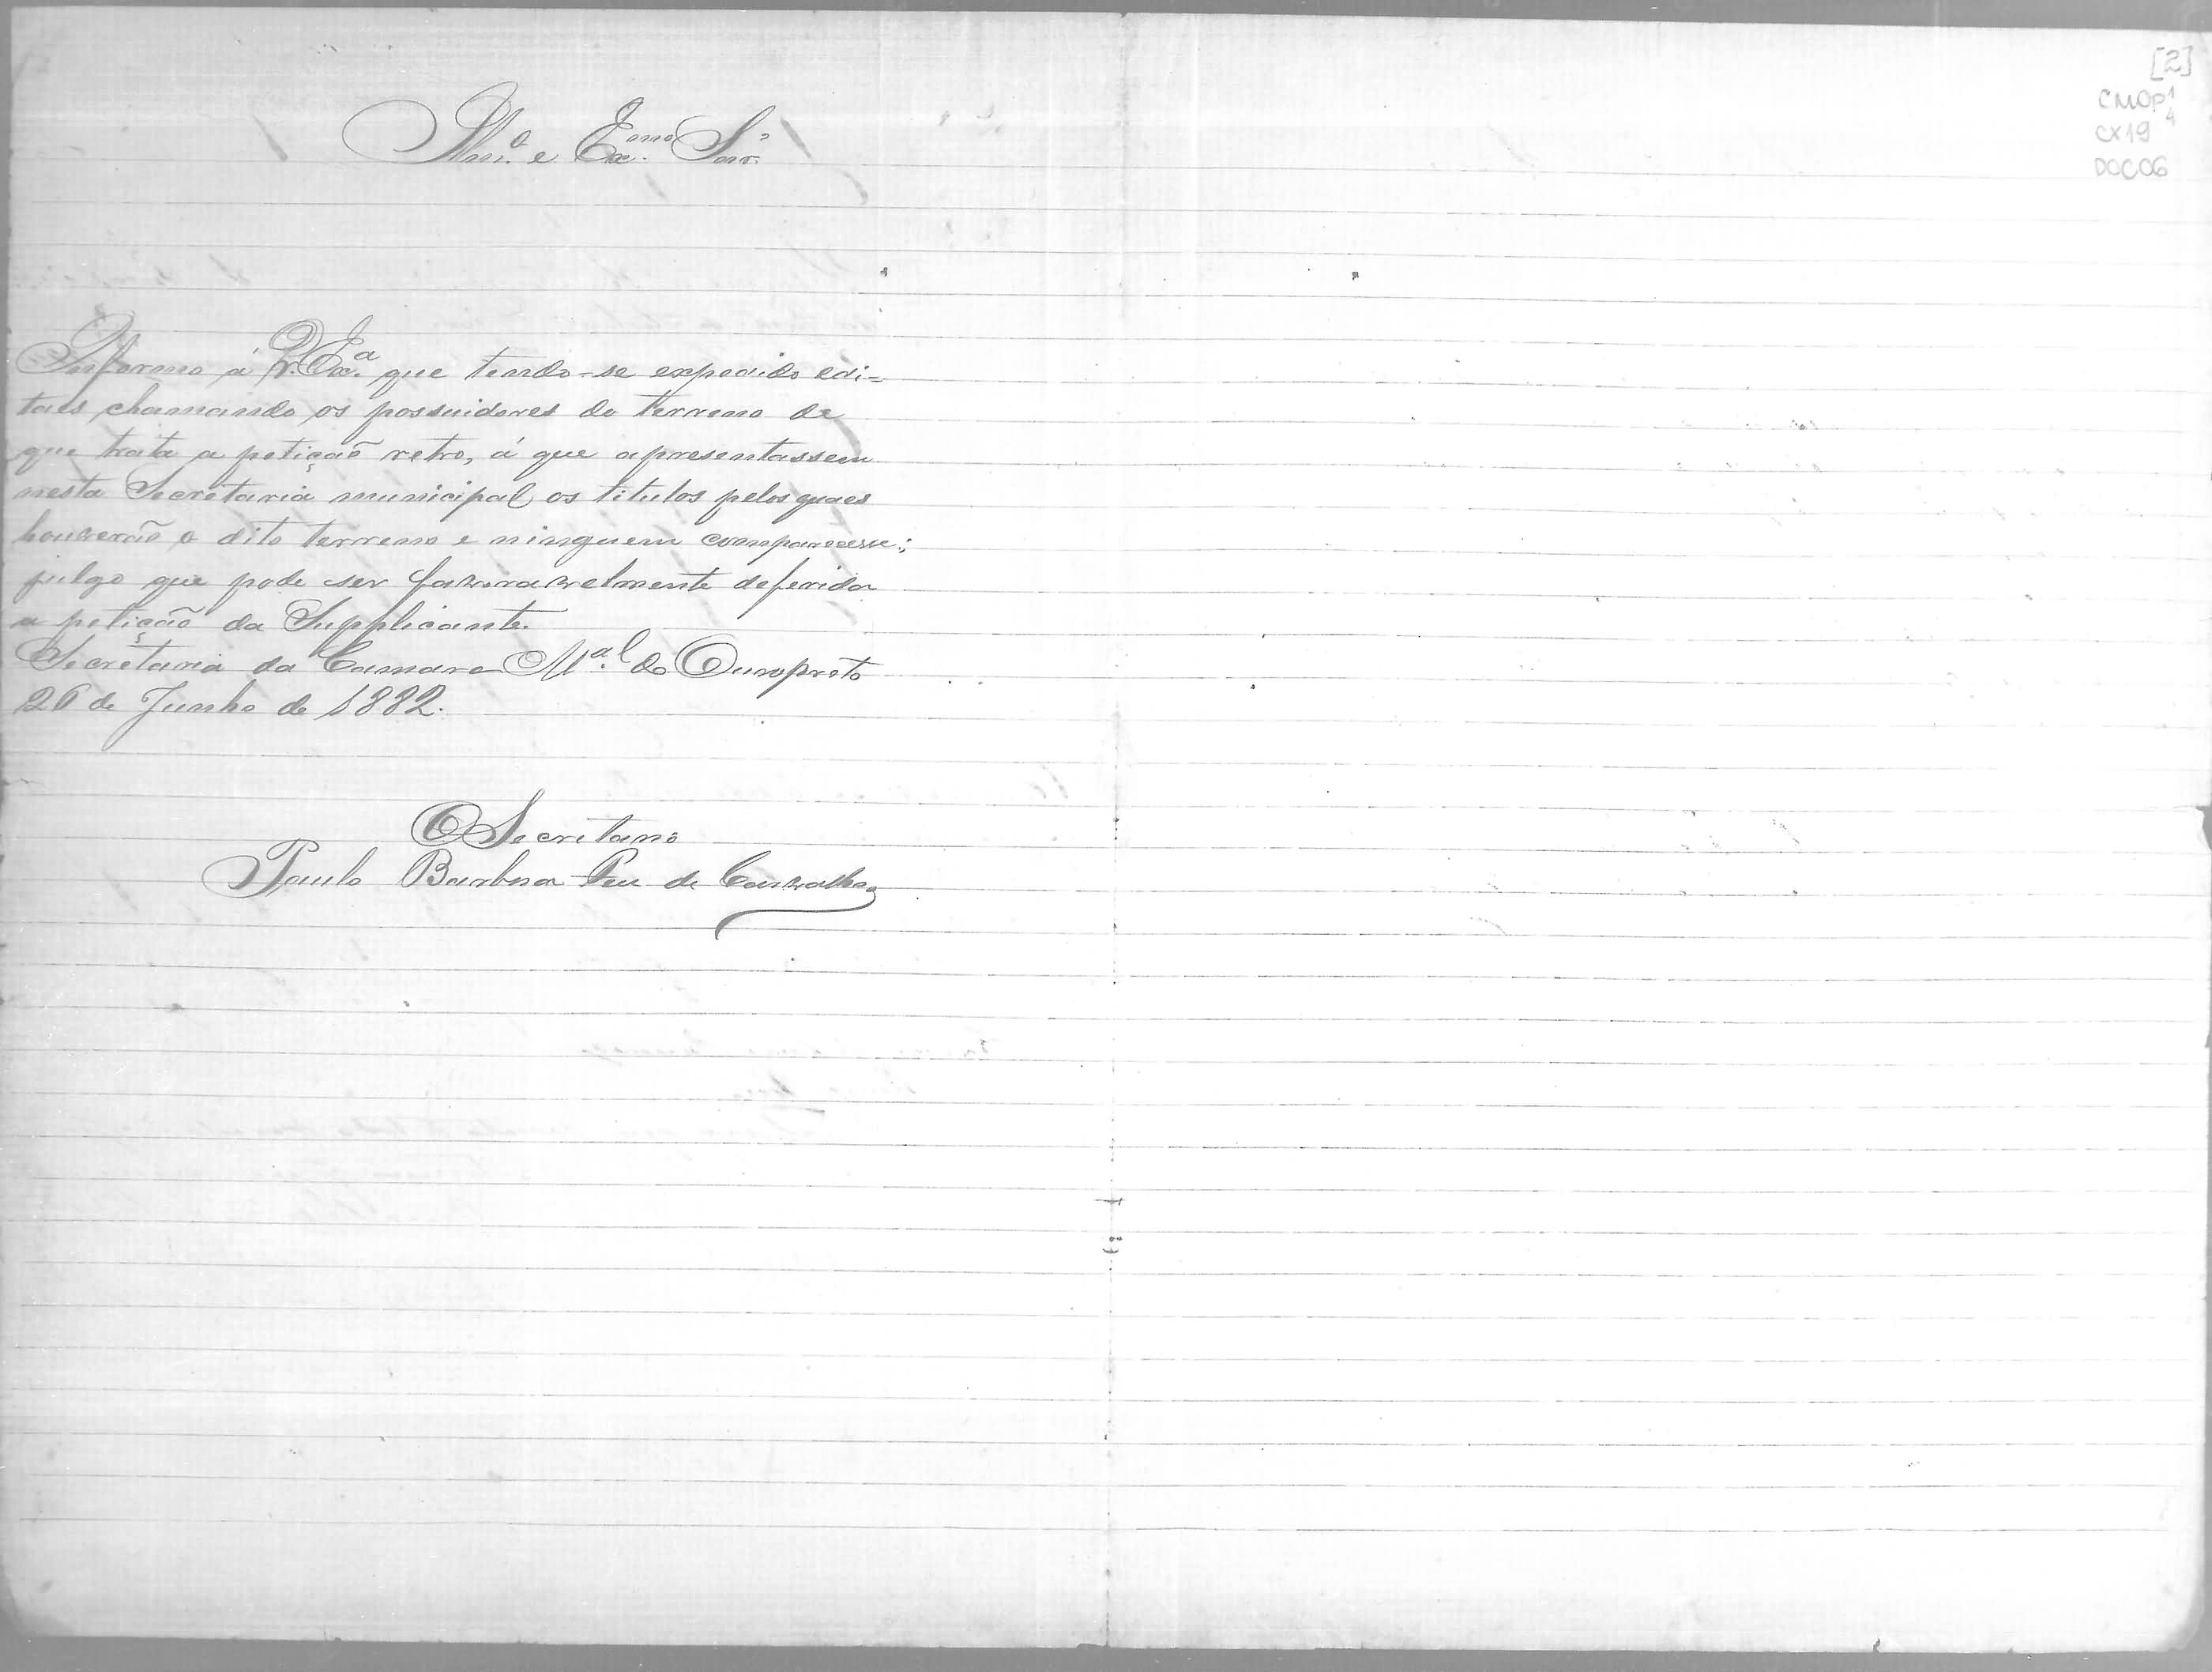 [2]
CMOP 1
4
CX19
DOC06
Illm.º e Ex.mo Snr.
Informo á V. Ex.ª que tendo-se expedido edi=
taes chamando os possuidores do terreno de
que trata a petição retro, á que apresentassem
nesta Secretaria municipal os titulos pelos quaes
houverão o dito terreno e ninguem compareceu;
julgo que pode ser favoravelmente deferida
a petição da Supplicante.
Secretaria da Camara M.al do Ouropreto
26 de Junho de 1882.
O Secretario
Paulo Barbosa de Carvalho